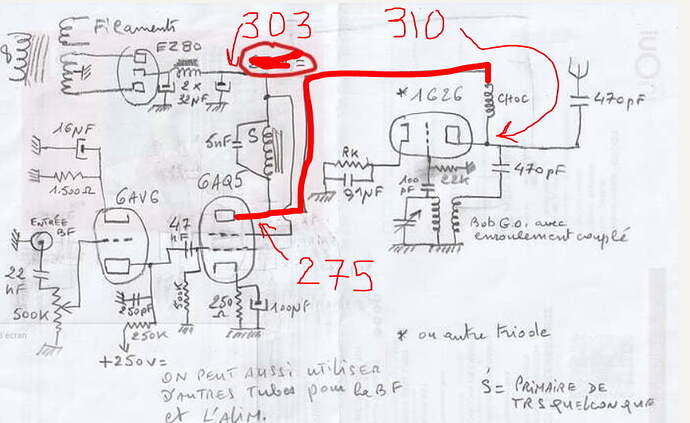 303
310
Filaments
EZ80
2 x
32NF
CHOC
* 1G26
470pF
16NF
5nF
S
RK
91NF
470pF
1.500Ω
6AV6
6AQ5
100
pF
22K
ENTRÉE
BF
47
nF
Bob G.O. avec
enroulement couplé
275
22
nF
500K
250pF
500K
250
Ω
100NF
250K
* ou autre triode
+250V=
ON PEUT AUSSI UTILISER
D'AUTRES TUBES pour la BF
et L'ALIM.
S = PRIMAIRE DE
TRS QUELCONQUE